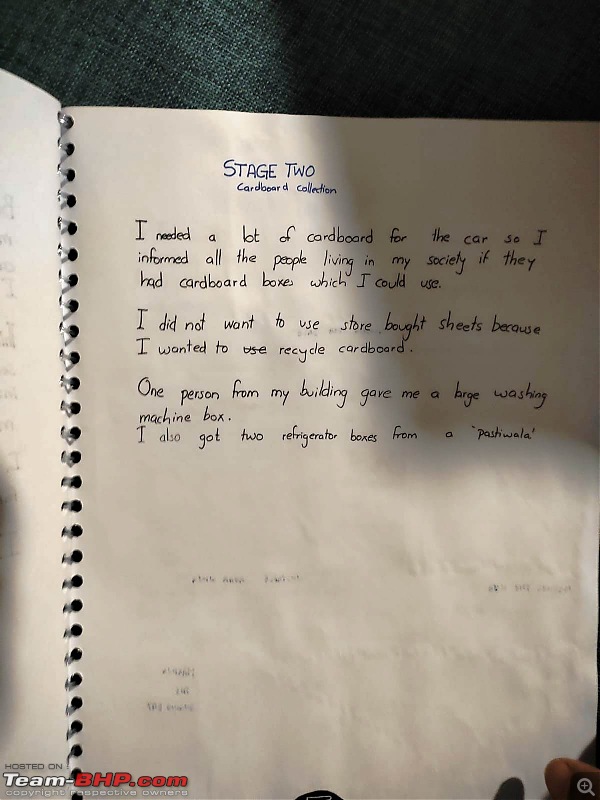 STAGE TWO
Cardboard collection
I needed a lot of cardboard for the car so I
informed all the people living in my society if they
had cardboard boxes which I could use.
I did not want to use store bought sheets because
I wanted to use recycle cardboard.
One person from my building gave me a large washing
machine box.
I also got two refrigerator boxes from a 'pastiwala'
HOSTED ON :
Team-BHP.com
copyright respective owners